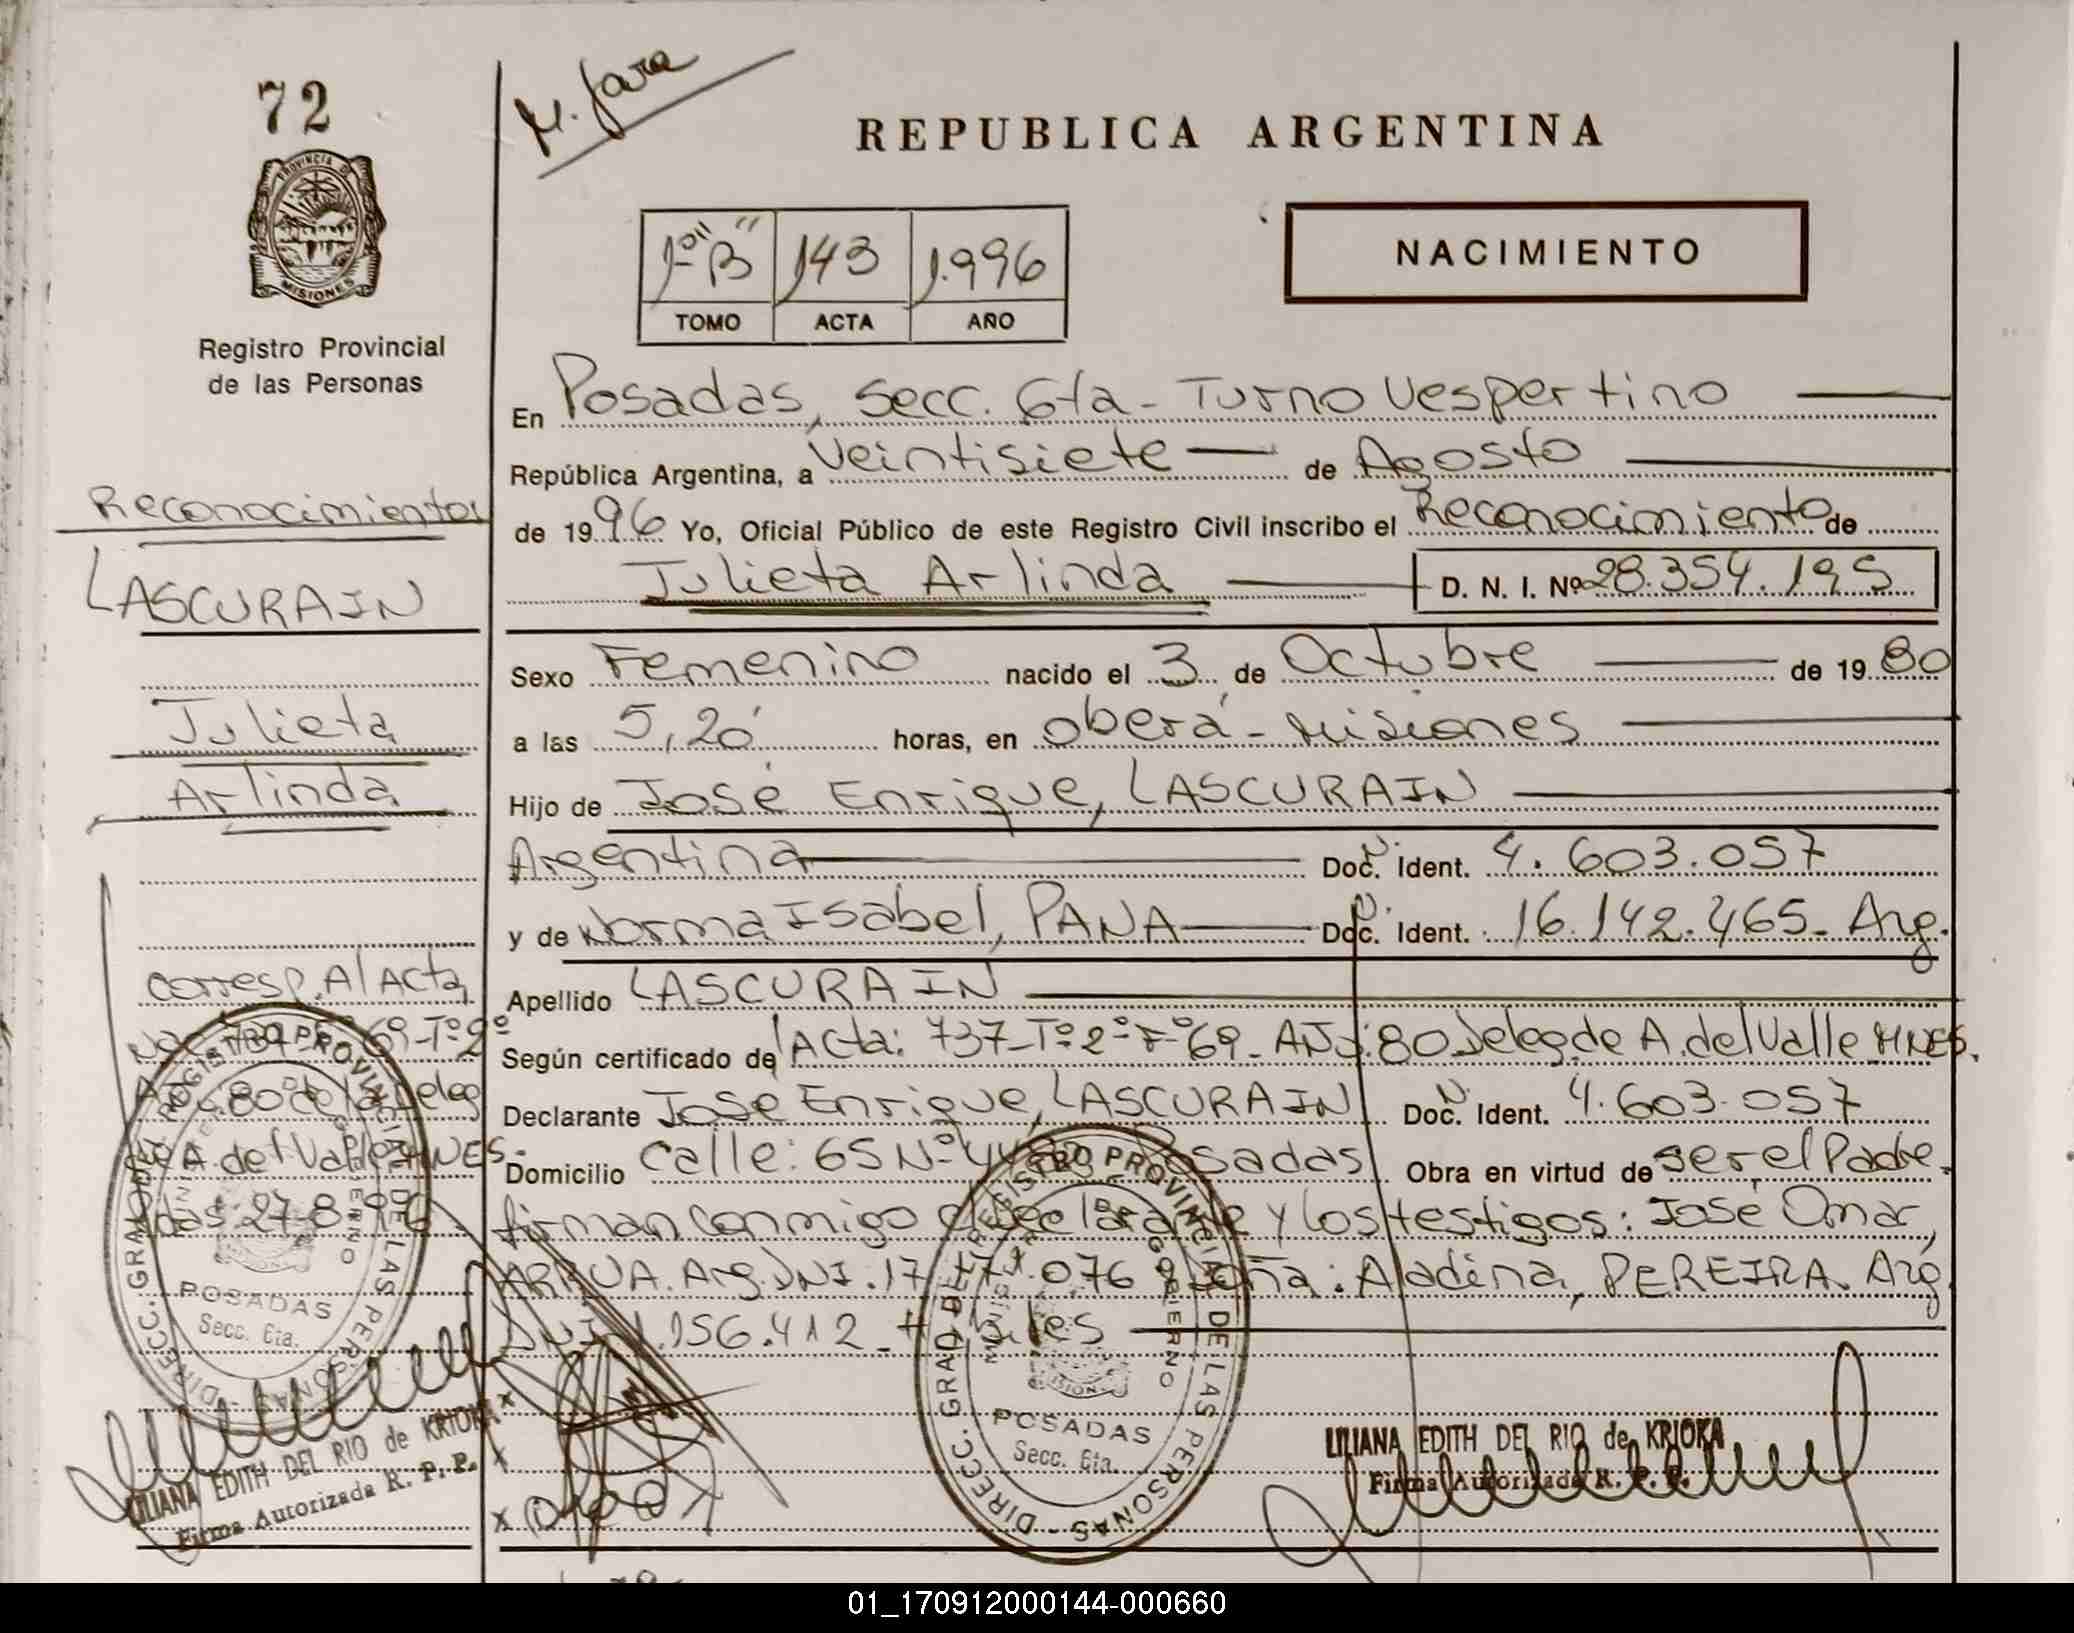 72
M. Jara
REPUBLICA ARGENTINA
PROVINCIA DE
MISIONES
Registro Provincial
de las Personas
1º "B" 143 1.996
TOMO ACTA AÑO
NACIMIENTO
En Posadas, secc. 6ta - Turno Vespertino
República Argentina, a Veintisiete de Agosto
de 1996 Yo, Oficial Público de este Registro Civil inscribo el Reconocimiento de
Julieta Arlinda D. N. I. Nº 28.354.195
Sexo Femenino nacido el 3 de Octubre de 1980
a las 5,20 horas, en Oberá - Misiones
Hijo de José Enrique, LASCURAIN
Argentina Doc. Ident. 4.603.057
y de Norma Isabel, PANA Doc. Ident. 16.142.465 - Arg.
Apellido LASCURAIN
Según certificado de Acta: 737 - Tº 2º Fº 69 - Año: 80 Deleg. de A. del Valle MNES.
Declarante Jose Enrique, LASCURAIN Doc. Ident. 4.603.057
Domicilio Calle: 65 Nº Posadas Obra en virtud de ser el Padre.
firman conmigo el declarante y los testigos: José Omar,
Arg. DNI. 17. .076 Aladina, PEREIRA. Arg.
DNI .156.412
Reconocimiento
LASCURAIN
Julieta
Arlinda
Corresp. Al Acta
No 737 Fº 69 - Tº 2º
80 de la Deleg
de A. del Valle MNES.
Pdas 27-8-96
DIRECC. GRAL. DEL REGISTRO PROVINCIAL DE LAS PERSONAS
POSADAS
Secc. 6ta.
LILIANA EDITH DEL RIO de KRIOKA
Firma Autorizada R. P. P.
DIRECC. GRAL. DEL REGISTRO PROVINCIAL DE LAS PERSONAS
POSADAS
Secc. 6ta.
LILIANA EDITH DEL RIO de KRIOKA
Firma Autorizada R. P. P.
01_170912000144-000660